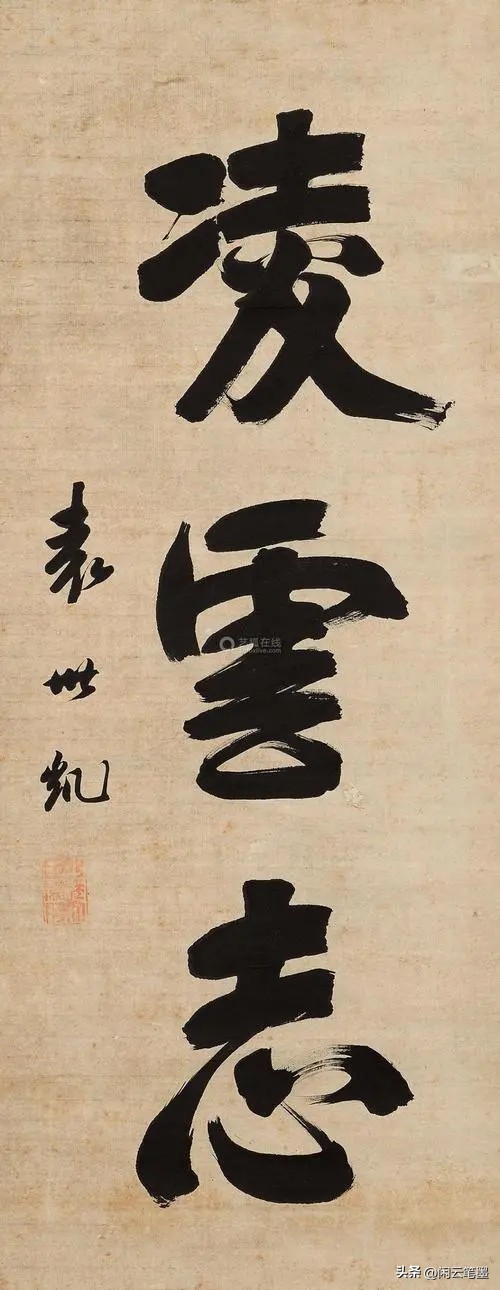 凌雲志
袁世凱
艺狐在线
头条 @闲云笔墨